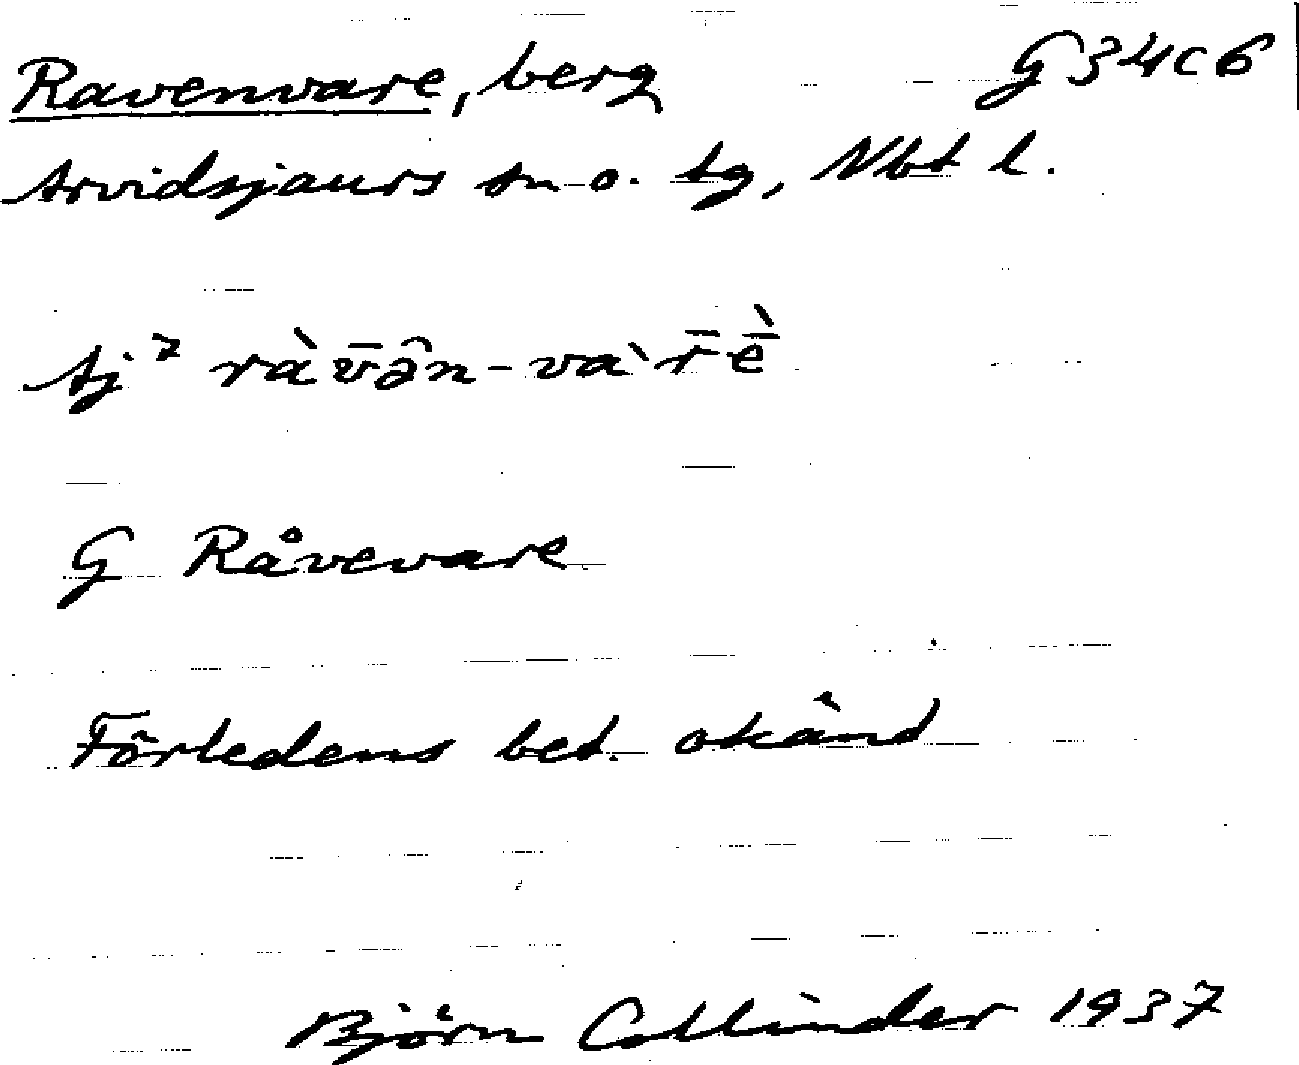 Ravenvare, berg G34c6
Arvidsjaurs sn o. tg, Nbt l.
Aj⁷ ràv̄ə̑n-vàr̄ḕ
G Råvevare
Förledens bet. okänd
Björn Collinder 1937